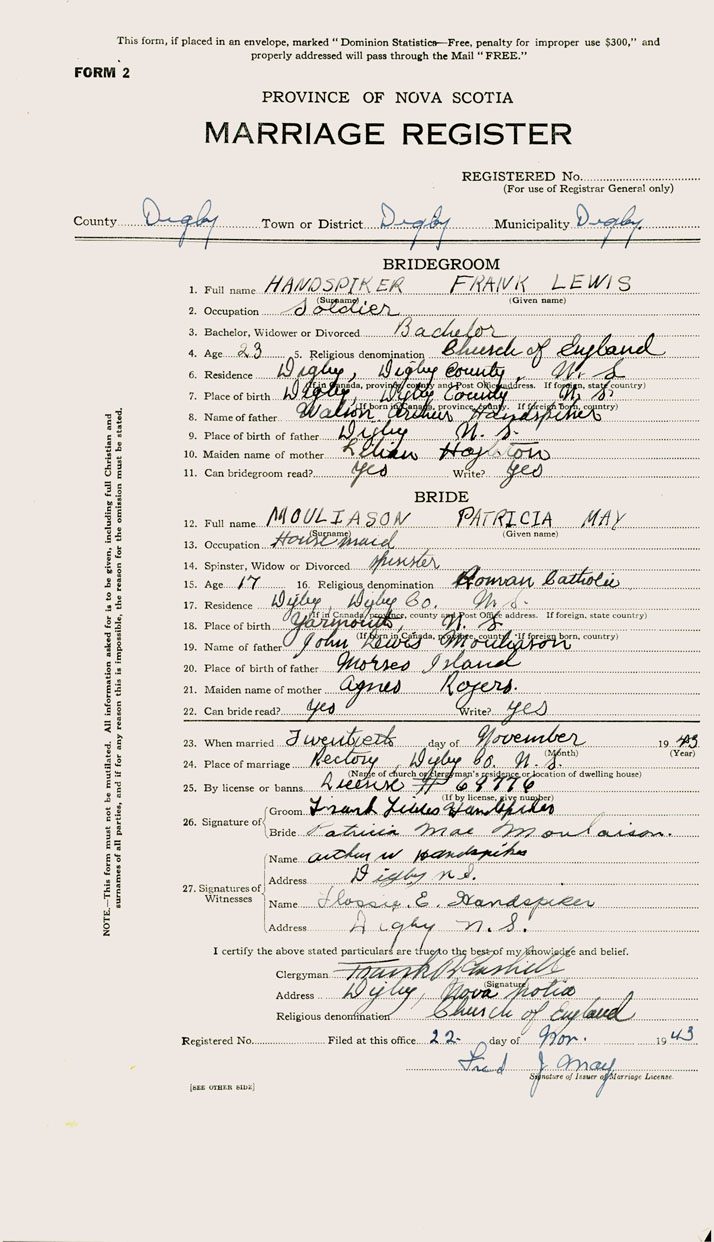 This form, if placed in an envelope, marked "Dominion Statistics—Free, penalty for improper use $300," and
properly addressed will pass through the Mail "FREE."
FORM 2
PROVINCE OF NOVA SCOTIA
MARRIAGE REGISTER
REGISTERED No.
(For use of Registrar General only)
County Digby Town or District Digby Municipality Digby.
BRIDEGROOM
1. Full name HANDSPIKER FRANK LEWIS
(Surname) (Given name)
2. Occupation Soldier
3. Bachelor, Widower or Divorced Bachelor
4. Age 23 5. Religious denomination Church of England
6. Residence Digby, Digby County, N. S
(If in Canada, province, county and Post Office address. If foreign, state country)
7. Place of birth Digby, Digby County N. S.
(If born in Canada, province, county. If foreign born, country)
8. Name of father Arthur Handspiker
9. Place of birth of father Digby N. S.
10. Maiden name of mother Lilian
11. Can bridegroom read? Yes Write? Yes
BRIDE
12. Full name MOULIASON PATRICIA MAY
(Surname) (Given name)
13. Occupation House maid
14. Spinster, Widow or Divorced Spinster
15. Age 17 16. Religious denomination Roman Catholic
17. Residence Digby, Digby Co. N. S.
(If in Canada, province, county and Post Office address. If foreign, state country)
18. Place of birth Yarmouth, N. S.
(If born in Canada, province, county. If foreign born, country)
19. Name of father John Lewis Mouliason
20. Place of birth of father Morses Island
21. Maiden name of mother Agnes Rogers.
22. Can bride read? Yes Write? Yes
23. When married Twentieth day of November 1943
(Month) (Year)
24. Place of marriage Rectory, Digby Co. N. S.
(Name of church or clergyman's residence or location of dwelling house)
25. By license or banns License # 69776
(If by license, give number)
26. Signature of
Groom Frank Handspiker
Bride Patricia Mae Moulaison.
27. Signatures of Witnesses
Name Arthur W Handspiker
Address Digby N.S.
Name Flossie. E. Handspiker
Address Digby N. S.
I certify the above stated particulars are true to the best of my knowledge and belief.
Clergyman Frank
(Signature)
Address Digby, Nova Scotia
Religious denomination Church of England
Registered No. Filed at this office 22 day of Nov. 1943
Fred J May
Signature of Issuer of Marriage License.
[SEE OTHER SIDE]
NOTE.—This form must not be mutilated. All information asked for is to be given, including full Christian and
surnames of all parties, and if for any reason this is impossible, the reason for the omission must be stated.